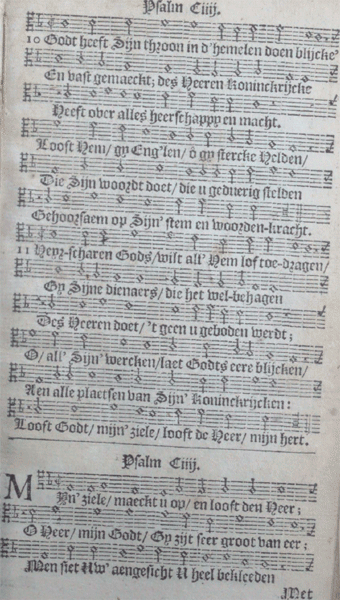 Psalm Ciiij.
10 Godt heeft Sijn throon in d'hemelen doen blijcke'
En vast gemaeckt; des Heeren Koninckrijcke
Heeft over alles heerschappy en macht.
Looft Hem/ gy Eng'len/ ô gy stercke Helden/
Die Sijn woordt doet/ die u geduerig stelden
Gehoorsaem op Sijn' stem en woorden-kracht.
11 Heyr-scharen Gods/ wilt all' Hem lof toe-dragen/
Gy Sijne dienaers/ die het wel-behagen
Des Heeren doet/ 't geen u geboden werdt;
O/ all' Sijn' wercken/ laet Godts eere blijcken/
Aen alle plaetsen van Sijn' Koninckrijcken:
Looft Godt/ mijn' ziele/ looft de Heer/ mijn hert.
Psalm Ciiij.
MYn' ziele/ maeckt u op/ en looft den Heer;
O Heer/ mijn Godt/ Gy zijt seer groot van eer;
Men siet Uw' aengesicht U heel bekleeden
Met